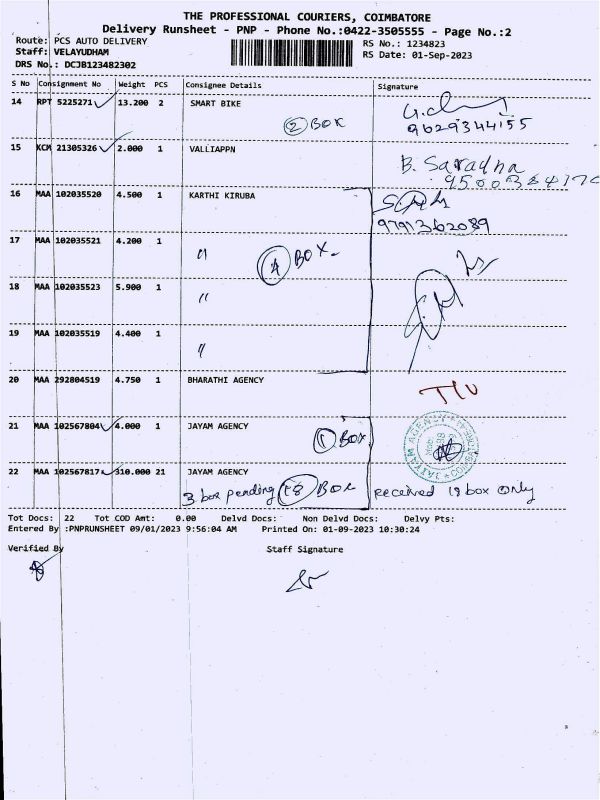 THE PROFESSIONAL COURIERS, COIMBATORE
Delivery Runsheet - PNP - Phone No.:0422-3505555 - Page No.:2
Route: PCS AUTO DELIVERY
RS No.: 1234823
Staff: VELAYUDHAM
RS Date: 01-Sep-2023
DRS No.: DCJB123482302
S No Consignment No Weight PCS Consignee Details Signature
14 RPT 5225271 13.200 2 SMART BIKE
2 BOX
9629344155
15 KCM 21305326 2.000 1 VALLIAPPN
B. Saradha
16 MAA 102035520 4.500 1 KARTHI KIRUBA
9791362089
17 MAA 102035521 4.200 1 "
4 BOX
18 MAA 102035523 5.900 1 "
19 MAA 102035519 4.400 1 "
20 MAA 292804519 4.750 1 BHARATHI AGENCY
21 MAA 102567804 4.000 1 JAYAM AGENCY
1 Box
JAYAM AGENCY
22 MAA 102567817 310.000 21 JAYAM AGENCY
3 box pending 18 Box received 18 box only
Tot Docs: 22 Tot COD Amt: 0.00 Delvd Docs: Non Delvd Docs: Delvy Pts:
Entered By :PNPRUNSHEET 09/01/2023 9:56:04 AM Printed On: 01-09-2023 10:30:24
Verified By Staff Signature